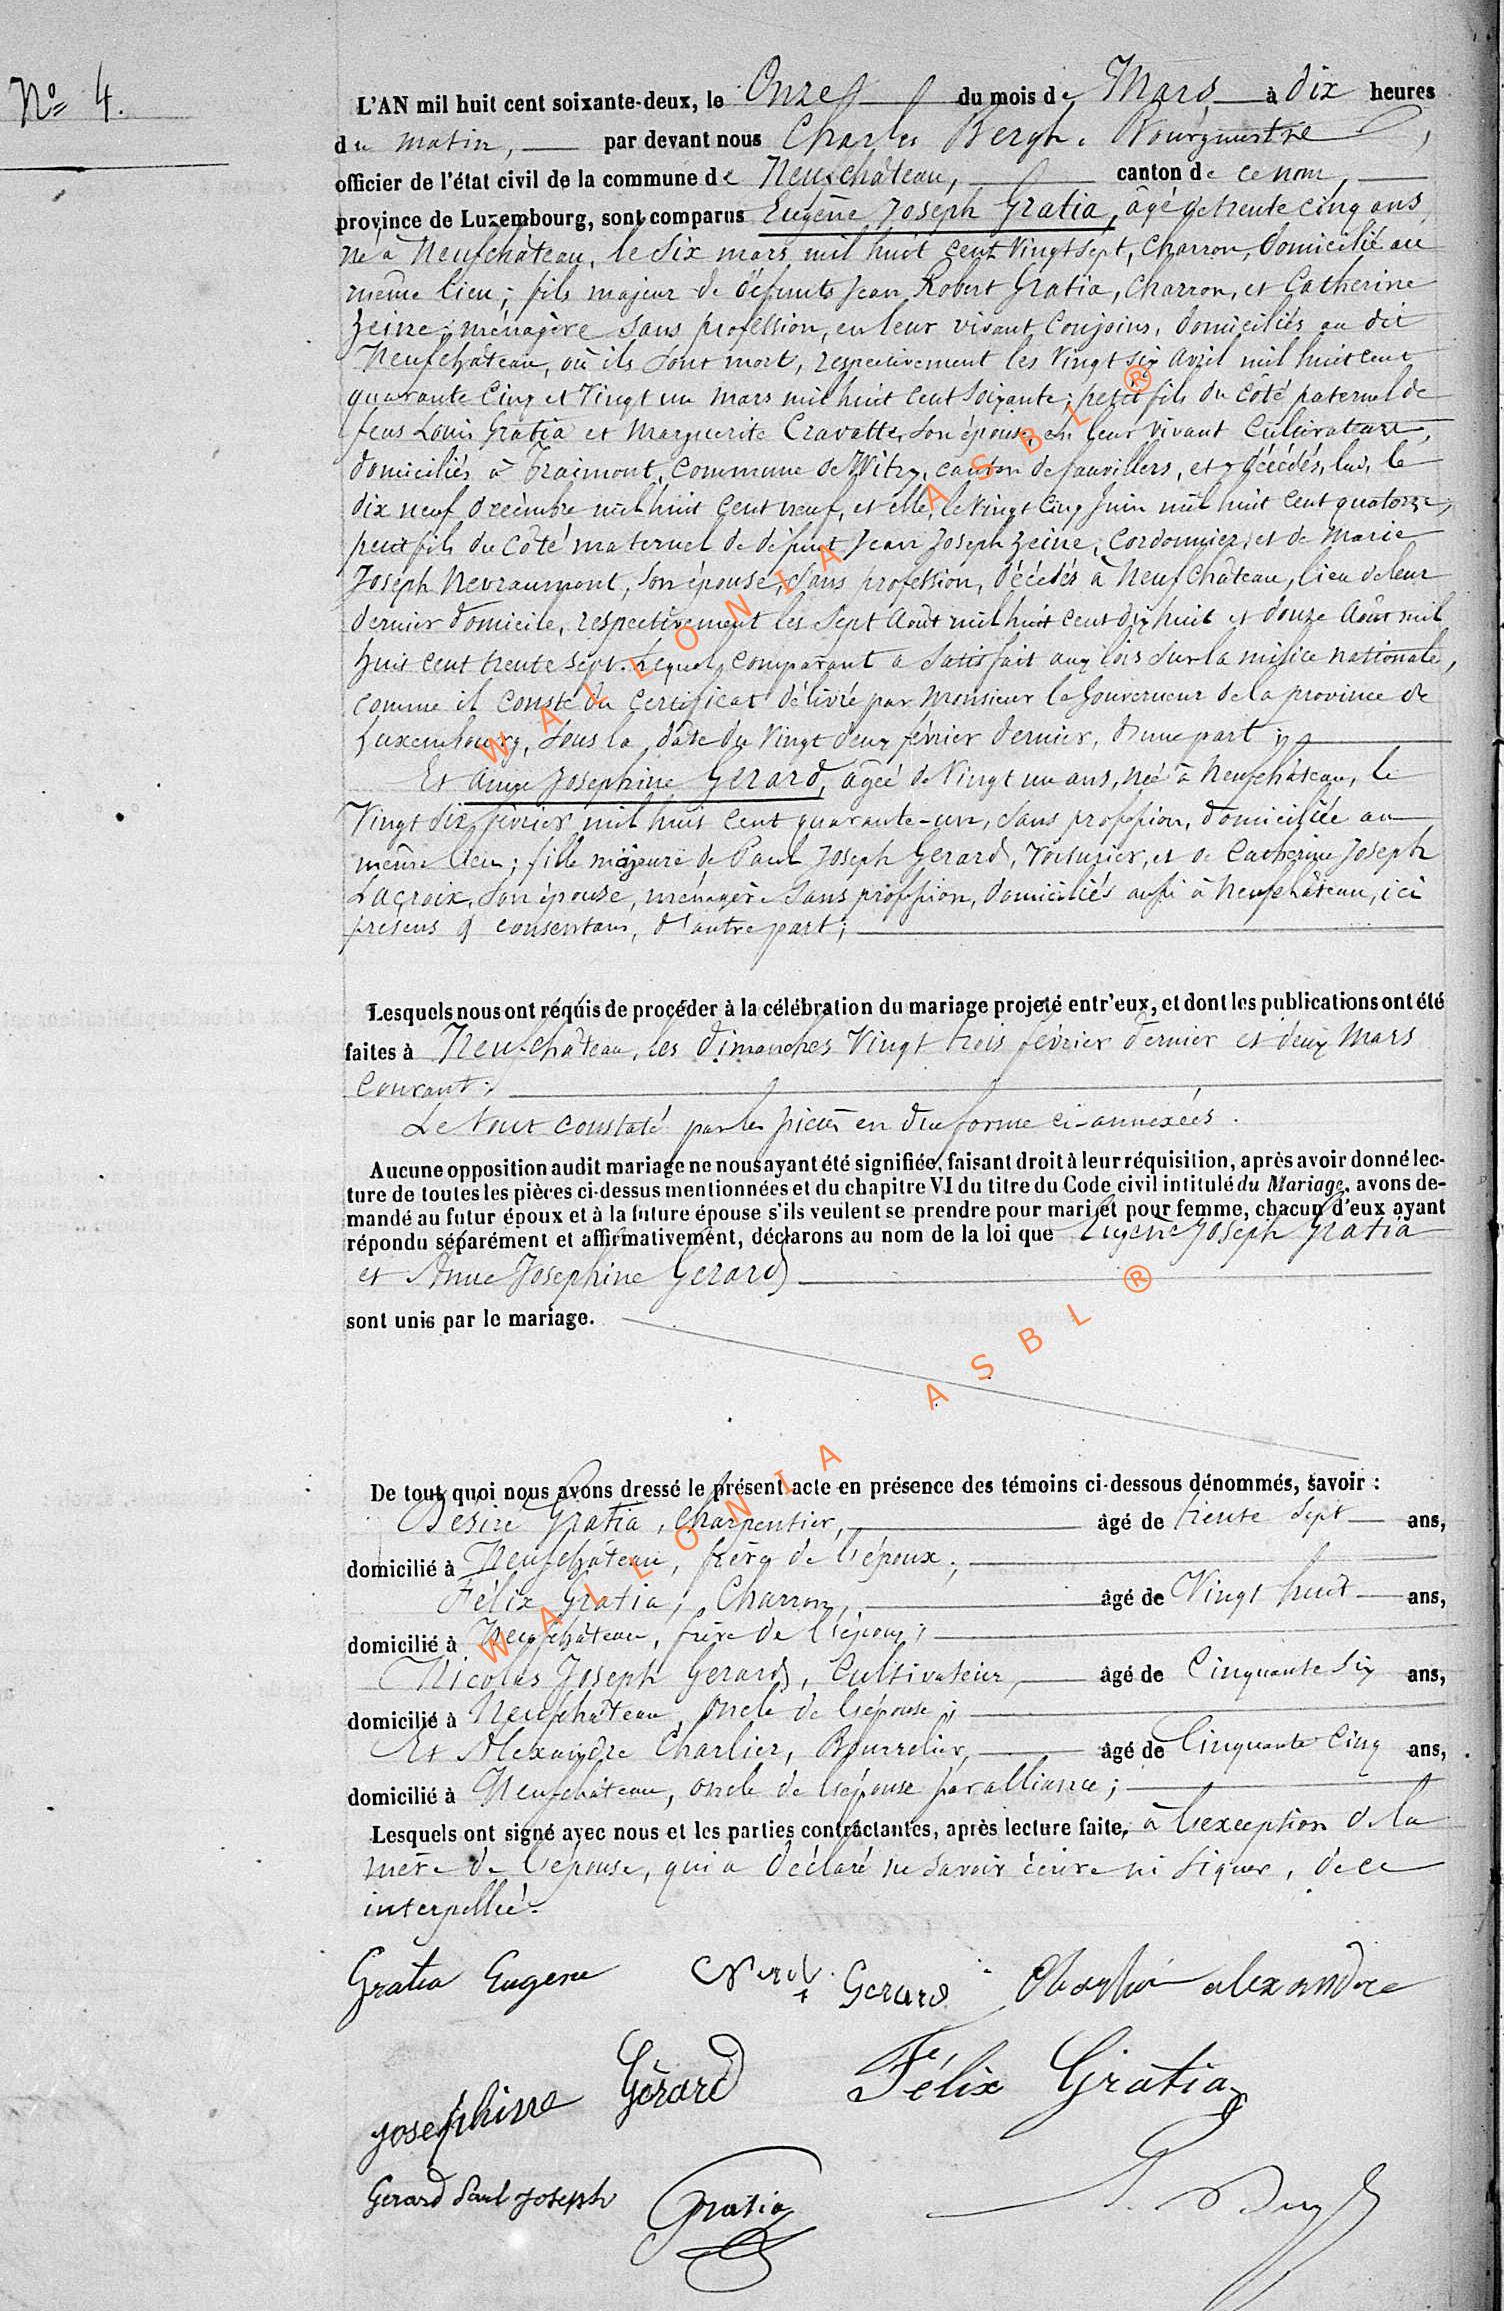 N° 4.
L'AN mil huit cent soixante-deux, le Onze du mois de Mars à dix heures
du matin, par devant nous Charles Bergh, Bourgmestre,
officier de l'état civil de la commune de Neufchâteau, canton de ce nom,
province de Luxembourg, sont comparus Eugène Joseph Gratia, âgé de trente cinq ans,
né à Neufchâteau, le six mars mil huit cent vingt sept, charron, domicilié au
même lieu; fils majeur de défunts Jean Robert Gratia, charron, et Catherine
Zeine, ménagère sans profession, en leur vivant conjoins, domiciliés au dit
Neufchâteau, où ils sont mort, respectivement les vingt six avril mil huit cent
quarante cinq et vingt un mars mil huit cent soixante; petit fils du côté paternel de
feus Louis Gratia et Marguerite Cravatte, son épouse, en leur vivant cultivateurs,
domiciliés à Traimont, commune de Witry, canton de fauvillers, et y décédés, lui, le
dix neuf décembre mil huit cent neuf, et elle, le vingt cinq juin mil huit cent quatorze;
petit fils du côté maternel de défunt Jean Joseph Zeine, cordonnier, et de Marie
Joseph Nevraumont, son épouse, sans profession, décédés à Neufchâteau, lieu de leur
dernier domicile, respectivement les sept août mil huit cent dix huit et douze août mil
huit cent trente sept. Lequel comparant a satisfait aux lois sur la milice nationale,
comme il conste du certificat délivré par Monsieur le Gouverneur de la province de
Luxembourg, sous la date du vingt deux février dernier, d'une part;
Et Anne Josephine Gerard, âgée de vingt un ans, née à Neufchâteau, le
vingt six février mil huit cent quarante-un, sans profession, domiciliée au
même lieu; fille majeure de Paul Joseph Gerard, voiturier, et de Catherine Joseph
Lacroix, son épouse, ménagère sans profession, domiciliés aussi à Neufchâteau, ici
présens & consentans, d'autre part;
Lesquels nous ont réquis de procéder à la célébration du mariage projeté entr'eux, et dont les publications ont été
faites à Neufchâteau, les dimanches vingt trois février dernier et deux mars
courant;
Le tout constaté par les pièces en due forme ci-annexées.
Aucune opposition audit mariage ne nous ayant été signifiée, faisant droit à leur réquisition, après avoir donné lec-
ture de toutes les pièces ci-dessus mentionnées et du chapitre VI du titre du Code civil intitulé du Mariage, avons de-
mandé au futur époux et à la future épouse s'ils veulent se prendre pour mari et pour femme, chacun d'eux ayant
répondu séparément et affirmativement, déclarons au nom de la loi que Eugène Joseph Gratia
et Anne Josephine Gerard
sont unis par le mariage.
De tout quoi nous avons dressé le présent acte en présence des témoins ci-dessous dénommés, savoir :
Désiré Gratia, Charpentier, âgé de trente sept ans,
domicilié à Neufchâteau, frère de l'époux;
Félix Gratia, Charron, âgé de vingt huit ans,
domicilié à Neufchâteau, frère de l'époux;
Nicolas Joseph Gerard, Cultivateur, âgé de Cinquante six ans,
domicilié à Neufchâteau, oncle de l'épouse;
Et Alexandre Charlier, Bourrelier, âgé de Cinquante cinq ans,
domicilié à Neufchâteau, oncle de l'épouse par alliance;
Lesquels ont signé avec nous et les parties contractantes, après lecture faite, à l'exception de la
mère de l'épouse, qui a déclaré ne savoir écrire ni signer, de ce
interpellée.
Gratia Eugene Gerard alexandre
Josephine Gérard Félix Gratia
Gerard Paul Joseph Gratia
WALLONIA ASBL ®
WALLONIA ASBL ®